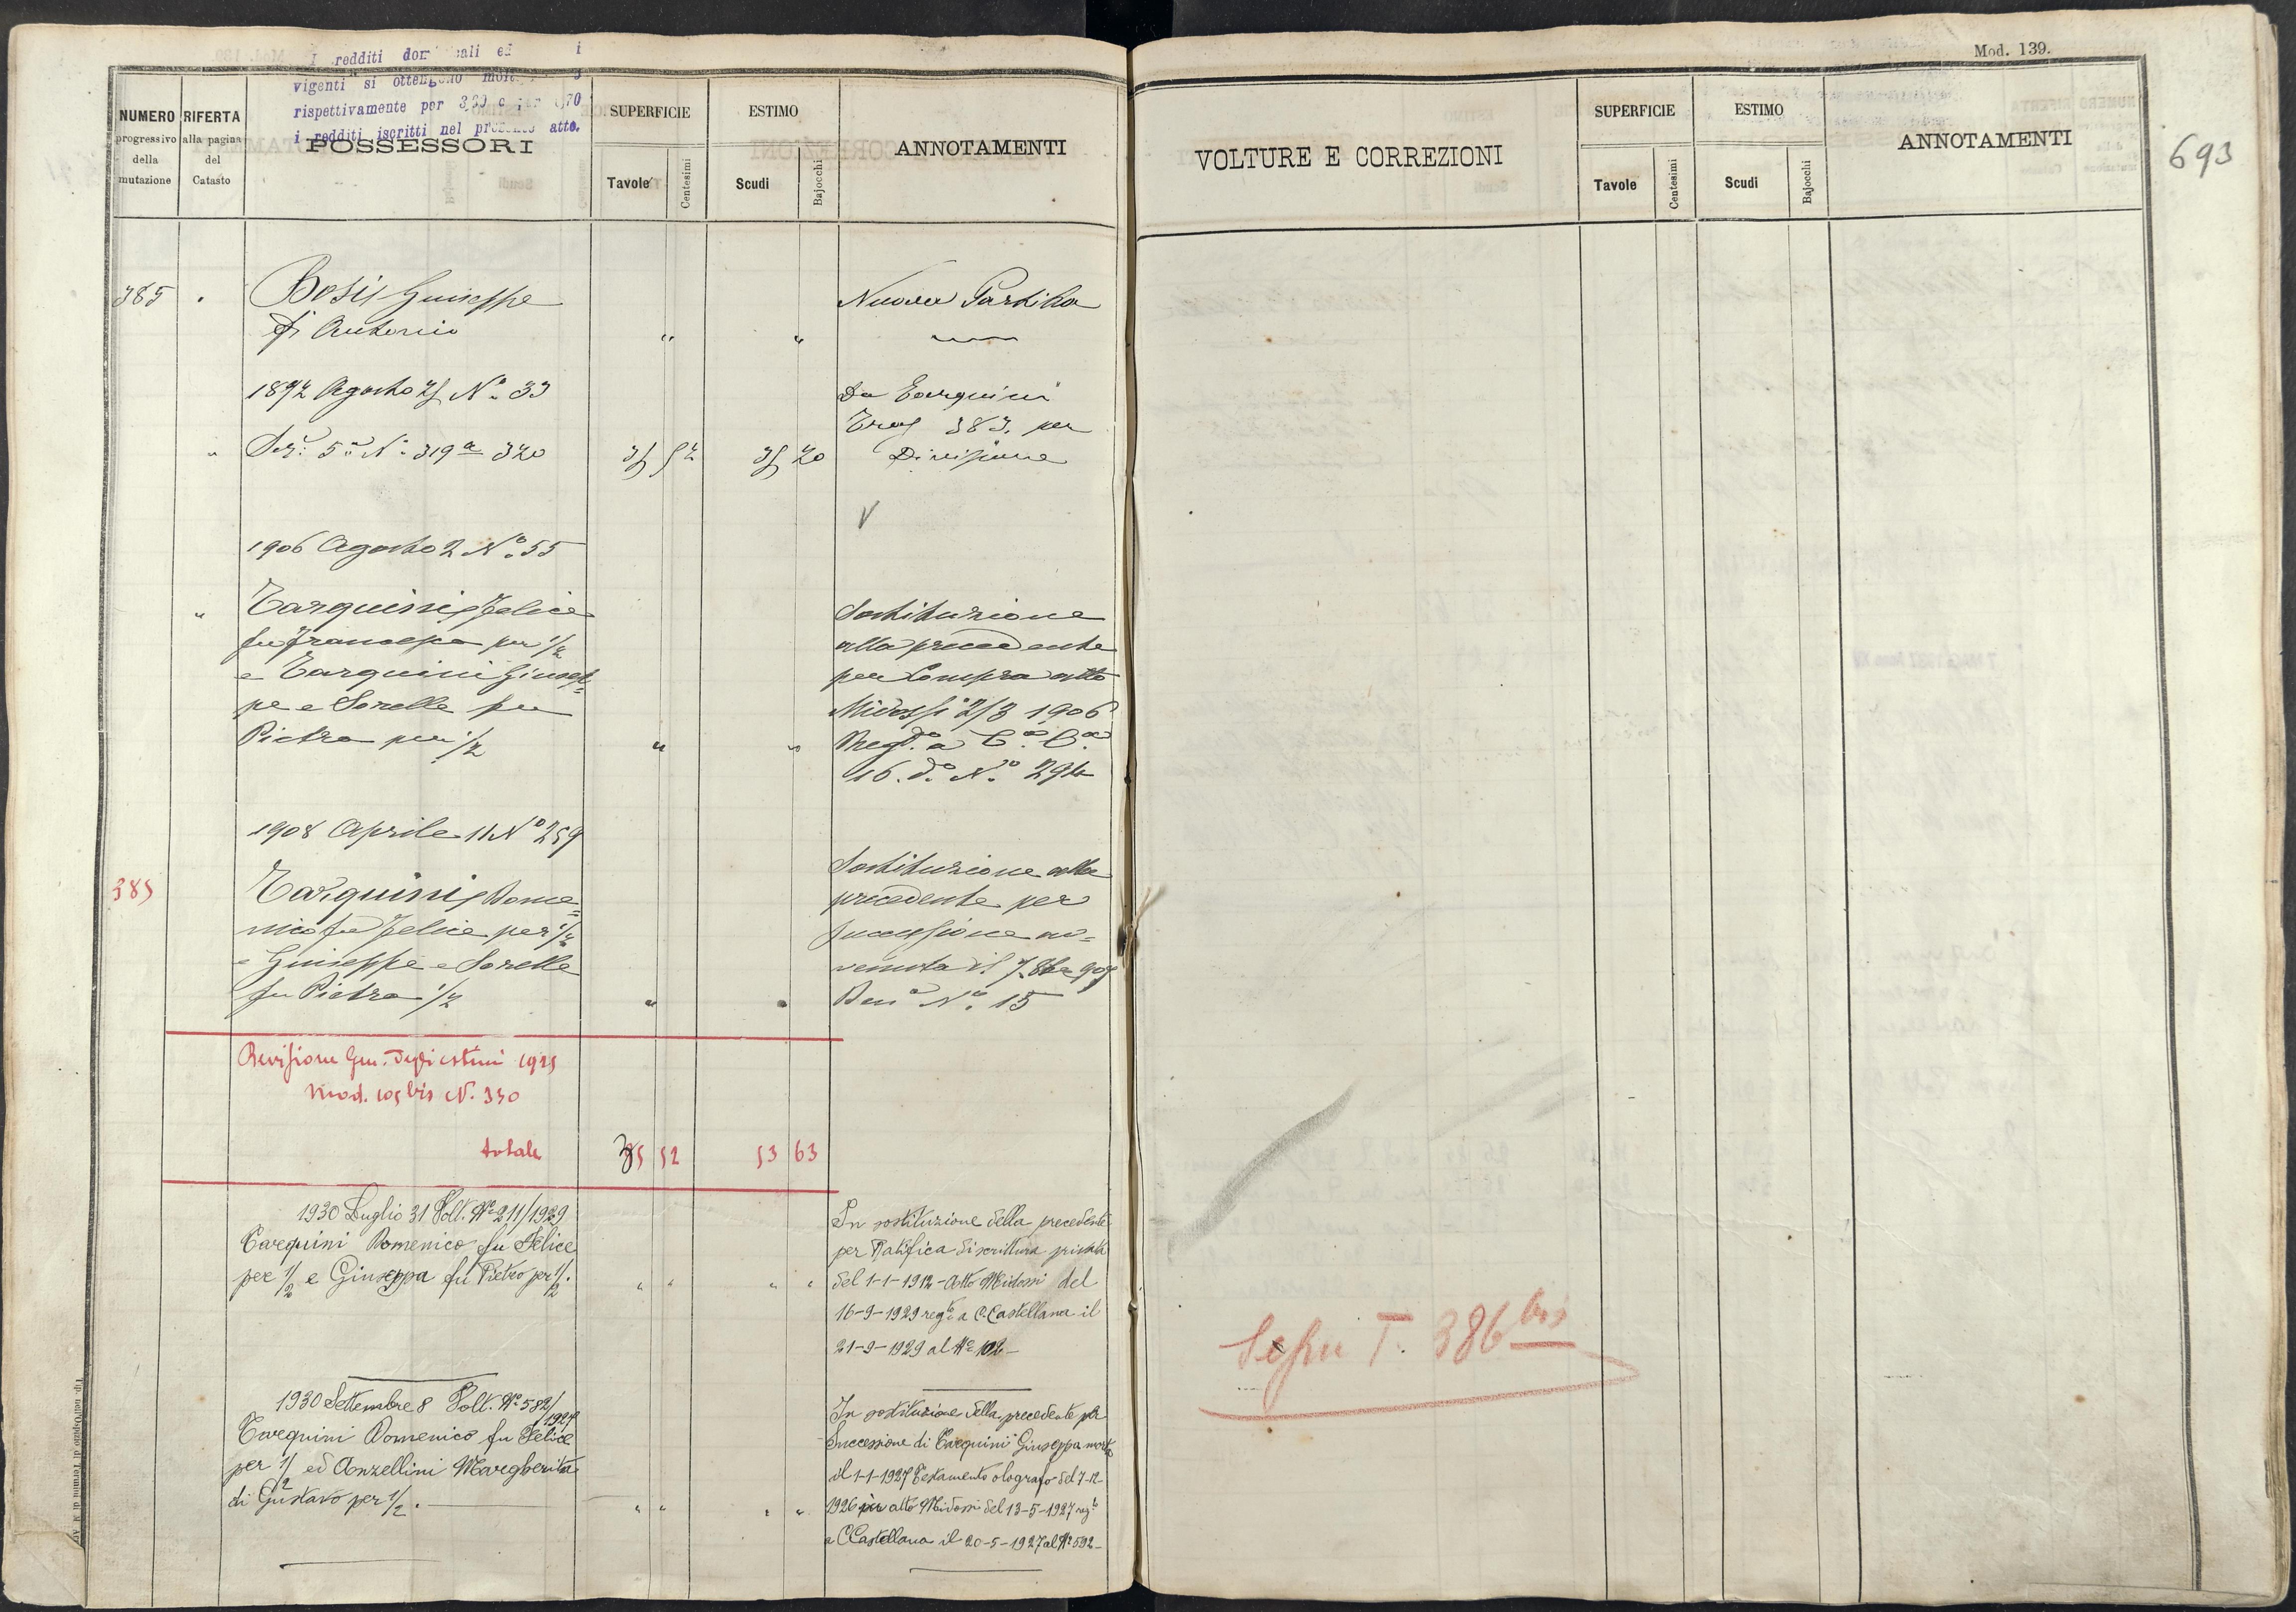 Mod. 139.
693
I redditi
vigenti si ottengono
rispettivamente per 3,30 e per 0,70
i redditi iscritti nel presente atto.
NUMERO
progressivo
della
mutazione
RIFERTA
alla pagina
del
Catasto
POSSESSORI
SUPERFICIE
Tavole
Centesimi
ESTIMO
Scudi
Bajocchi
ANNOTAMENTI
VOLTURE E CORREZIONI
SUPERFICIE
Tavole
Centesimi
ESTIMO
Scudi
Bajocchi
ANNOTAMENTI
385 Bosis Giuseppe Nuova Partita
di Antonio " "
1892 Agosto 25 N.° 33 Da Tarquini
383. per
" Sez. 5a N. 319 a 320 35 52 35 20 Divisione
V
1906 Agosto 2 N.° 55
" Tarquini Felice Sostituzione
fu Francesco per 1/2 alla precedente
e Tarquini Giusep= per Compra atto
pe e Sorelle fu Midossi 2/3 1906
Pietro per 1/2 " " Regto a Ca Ca
16. do N.° 294
1908 Aprile 11 N° 259
385 Tarquini Dome= Sostituzione alla
nico fu Felice per 1/2 precedente per
e Giuseppe e Sorelle Successione av=
fu Pietro 1/2 " " venuta il 7. 8bre 907
N.° 15
Revisione Gen. degli estimi 1925
Mod. 105 bis N. 330
totale 35 52 53 63
1930 Luglio 31 Volt. N° 211/1929 In sostituzione della precedente
Tarquini Domenico fu Felice per Ratifica di scrittura privata
per 1/2 e Giuseppa fu Pietro per 1/2. " " " " del 1-1-1912 - Atto Midossi del
16-9-1929 regto a C. Castellana il
21-9-1929 al N° 102 -
1930 Settembre 8 Volt. N° 582/1927 In sostituzione della precedente per
Tarquini Domenico fu Felice Successione di Tarquini Giuseppa morta
per 1/2 ed Anzellini Margherita il 1-1-1927 Testamento olografo del 7-12-
di Gustavo per 1/2. " " " " 1926 per atto Midossi del 13-5-1927 regto
a C. Castellana il 20-5-1927 al N° 592 -
Segue T. 386 bis